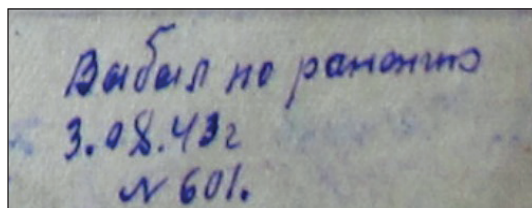 Выбыл по ранению
3.08.43г
N 601.